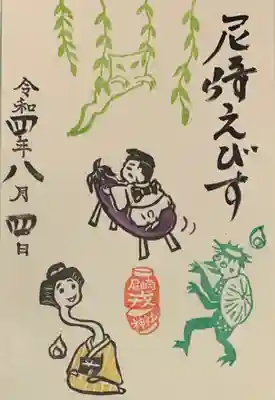 尼崎えびす
令和四年八月四日
尼崎
戎
神社